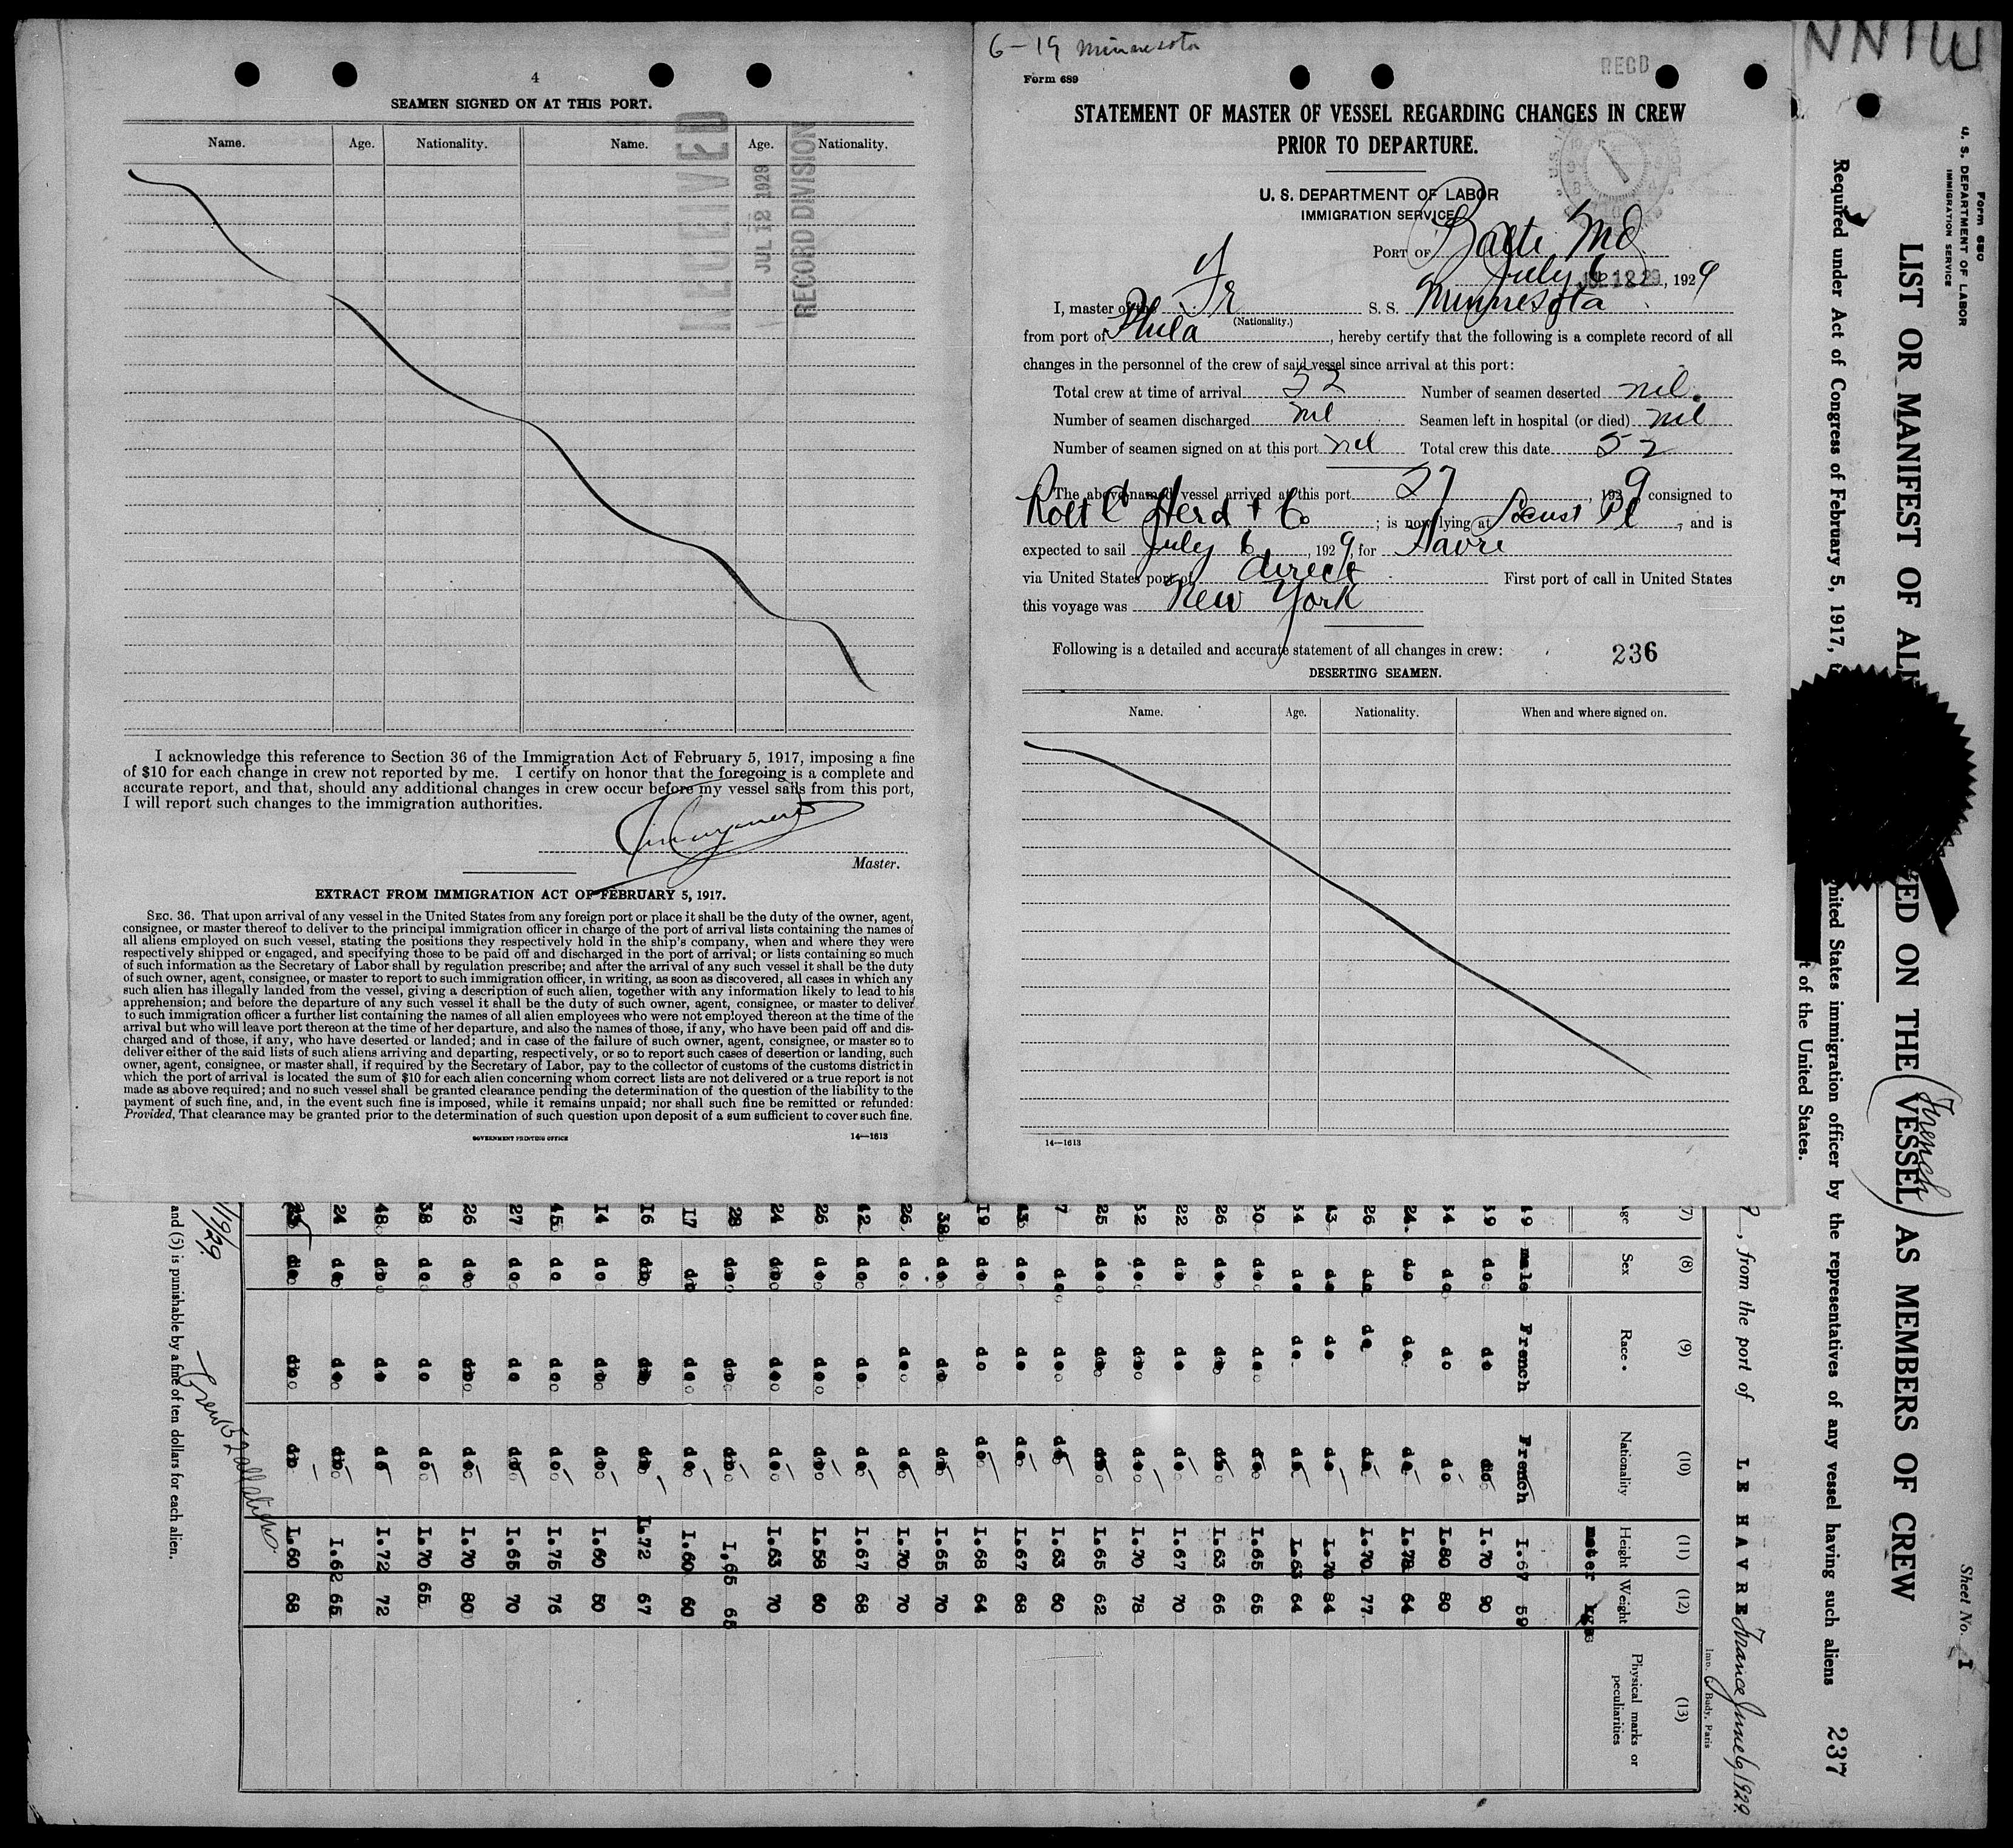 4
SEAMEN SIGNED ON AT THIS PORT.
Name. Age. Nationality. Name. Age. Nationality.
RECEIVED
JUL 12 1929
RECORD DIVISION
I acknowledge this reference to Section 36 of the Immigration Act of February 5, 1917, imposing a fine
of $10 for each change in crew not reported by me. I certify on honor that the foregoing is a complete and
accurate report, and that, should any additional changes in crew occur before my vessel sails from this port,
I will report such changes to the immigration authorities.
Master.
EXTRACT FROM IMMIGRATION ACT OF FEBRUARY 5, 1917.
SEC. 36. That upon arrival of any vessel in the United States from any foreign port or place it shall be the duty of the owner, agent,
consignee, or master thereof to deliver to the principal immigration officer in charge of the port of arrival lists containing the names of
all aliens employed on such vessel, stating the positions they respectively hold in the ship's company, when and where they were
respectively shipped or engaged, and specifying those to be paid off and discharged in the port of arrival; or lists containing so much
of such information as the Secretary of Labor shall by regulation prescribe; and after the arrival of any such vessel it shall be the duty
of such owner, agent, consignee, or master to report to such immigration officer, in writing, as soon as discovered, all cases in which any
such alien has illegally landed from the vessel, giving a description of such alien, together with any information likely to lead to his
apprehension; and before the departure of any such vessel it shall be the duty of such owner, agent, consignee, or master to deliver
to such immigration officer a further list containing the names of all alien employees who were not employed thereon at the time of the
arrival but who will leave port thereon at the time of her departure, and also the names of those, if any, who have been paid off and dis-
charged and of those, if any, who have deserted or landed; and in case of the failure of such owner, agent, consignee, or master so to
deliver either of the said lists of such aliens arriving and departing, respectively, or so to report such cases of desertion or landing, such
owner, agent, consignee, or master shall, if required by the Secretary of Labor, pay to the collector of customs of the customs district in
which the port of arrival is located the sum of $10 for each alien concerning whom correct lists are not delivered or a true report is not
made as above required; and no such vessel shall be granted clearance pending the determination of the question of the liability to the
payment of such fine, and, in the event such fine is imposed, while it remains unpaid; nor shall such fine be remitted or refunded:
Provided, That clearance may be granted prior to the determination of such question upon deposit of a sum sufficient to cover such fine.
GOVERNMENT PRINTING OFFICE 14—1613
6-19 Minnesota
Form 689
RECD
STATEMENT OF MASTER OF VESSEL REGARDING CHANGES IN CREW
PRIOR TO DEPARTURE.
U. S. DEPARTMENT OF LABOR
IMMIGRATION SERVICE
PORT OF Balto Md
July 6, 1929
I, master of the Fr S. S. Minnesota
(Nationality.)
from port of Phila, hereby certify that the following is a complete record of all
changes in the personnel of the crew of said vessel since arrival at this port:
Total crew at time of arrival 52 Number of seamen deserted nil.
Number of seamen discharged nil Seamen left in hospital (or died) nil
Number of seamen signed on at this port nil Total crew this date 52
The above-named vessel arrived at this port 27, 1929 consigned to
Robt C Herd & Co; is now lying at Locust Pt, and is
expected to sail July 6, 1929, for Havre
via United States port of direct First port of call in United States
this voyage was New York
Following is a detailed and accurate statement of all changes in crew: 236
DESERTING SEAMEN.
Name. Age. Nationality. When and where signed on.
14—1613
Form 680
U. S. DEPARTMENT OF LABOR
IMMIGRATION SERVICE
Sheet No. I
LIST OR MANIFEST OF
ED ON THE (French VESSEL) AS MEMBERS OF CREW
Required under Act of Congress of February 5, 1917,
nited States immigration officer by the representatives of any vessel having such aliens 237
t of the United States.
, from the port of LE HAVRE France June 6/1929.
Imp. Budy, Paris
(7) (8) (9) (10) (11) (12) (13)
ge Sex Race Nationality Height Weight Physical marks or peculiarities
meter kgs
male French French I.67 59
do do do I.70 90
do do do I.80 80
24 do do do I.78 64
26 do do do I.70 77
do do do I.70 84
do do do I.63 64
do do do I.65 65
26 do do do I.63 66
22 do do do I.67 70
do do do I.70 78
25 do do do I.65 62
do do do I.63 60
do do do I.67 68
19 do do do I.68 64
38 do do do I.65 70
26 do do do I.70 70
42 do do do I.67 68
26 do do do I.58 60
24 do do do I.63 70
28 do do do I.65 65
17 do do do I.60 60
16 do do do I.72 67
14 do do do I.60 50
45 do do do I.75 76
27 do do do I.65 70
26 do do do I.70 80
38 do do do I.70 65
48 do do do I.72 72
24 do do do I.62 65
do do do I.60 68
Crew 52 all aliens
and (5) is punishable by a fine of ten dollars for each alien.